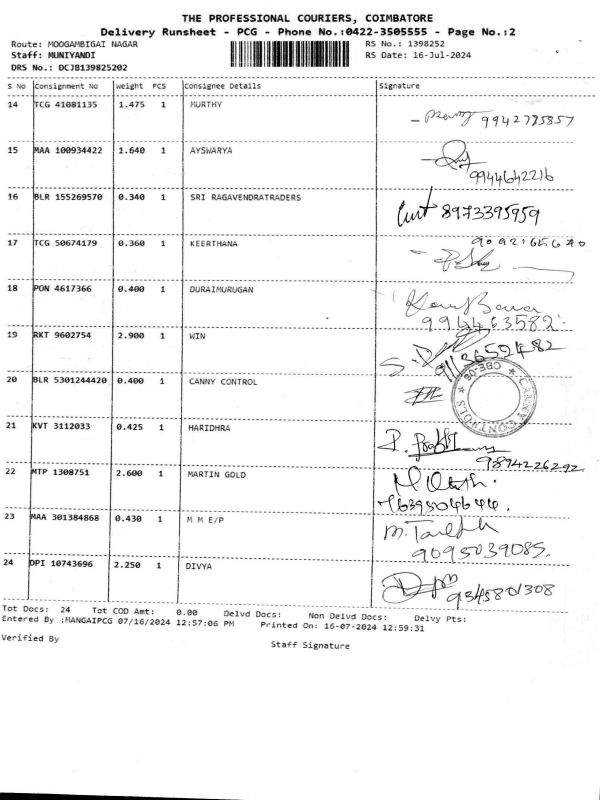 THE PROFESSIONAL COURIERS, COIMBATORE
Delivery Runsheet - PCG - Phone No.:0422-3505555 - Page No.:2
Route: MOOGAMBIGAI NAGAR RS No.: 1398252
Staff: MUNIYANDI RS Date: 16-Jul-2024
DRS No.: DCJB139825202
S No Consignment No Weight PCS Consignee Details Signature
14 TCG 41081135 1.475 1 MURTHY
15 MAA 100934422 1.640 1 AYSWARYA
9944642216
16 BLR 155269570 0.340 1 SRI RAGAVENDRATRADERS
8973395959
17 TCG 50674179 0.360 1 KEERTHANA
18 PON 4617366 0.400 1 DURAIMURUGAN
994463582
19 RKT 9602754 2.900 1 WIN
20 BLR 5301244420 0.400 1 CANNY CONTROL
CANNY CONTROLS CBE-06
21 KVT 3112033 0.425 1 HARIDHRA
9894226292
22 MTP 1308751 2.600 1 MARTIN GOLD
23 MAA 301384868 0.430 1 M M E/P
9095039085.
24 DPI 10743696 2.250 1 DIVYA
9345801308
Tot Docs: 24 Tot COD Amt: 0.00 Delvd Docs: Non Delvd Docs: Delvy Pts:
Entered By :MANGAIPCG 07/16/2024 12:57:06 PM Printed On: 16-07-2024 12:59:31
Verified By Staff Signature